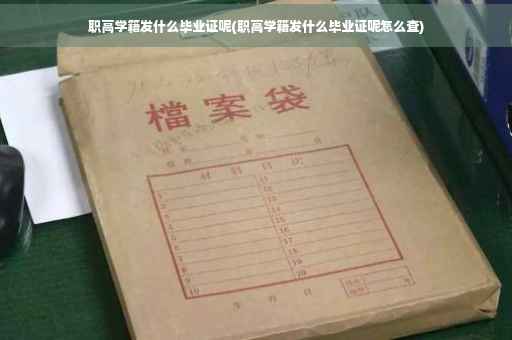 职高学籍发什么毕业证呢(职高学籍发什么毕业证呢怎么查)
檔案袋
材料目次
1 11
2 12
3 13
4 14
5 15
6 16
7 17
8 18
9 19
10 20
年 月 日